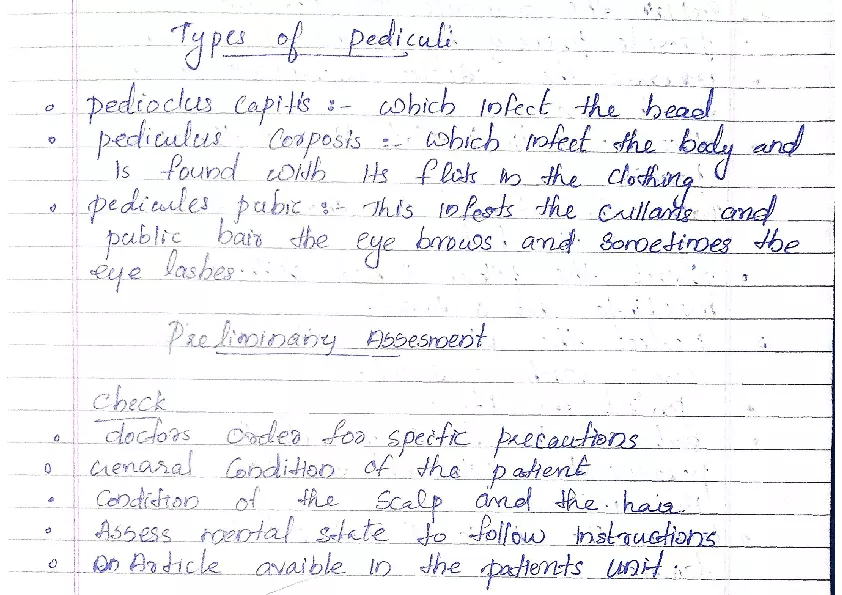 Types of pediculi.
pedioclus capitis :- which infect the head
pediculus corposis :- which infect the body and
is found with its flats in the clothing
pedicules pubic :- This infests the cullanis and
public hair the eye brows. and sometimes the
eye lashes....
Preliminary Assesment
Check
doctors order for specific precautions
Genaral Condition of the patient
Condition of the scalp and the hair
Assess mental state to follow instructions
An Article avaible in the patients unit.